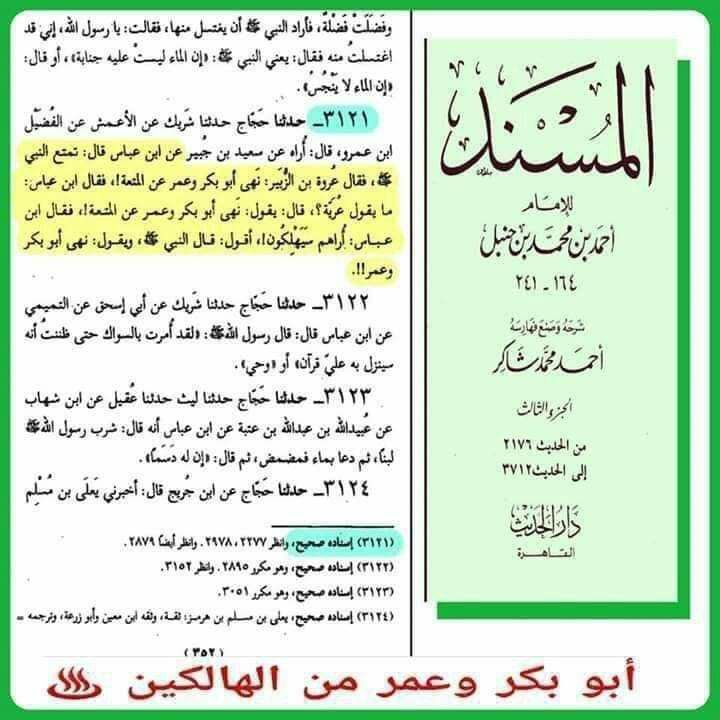 المسند
للإمام
أحمد بن محمد بن حنبل
١٦٤ - ٢٤١
شرحه وصنع فهارسه
أحمد محمد شاكر
الجزء الثالث
من الحديث ٢١٧٦
إلى الحديث ٣٧١٢
دار الحديث
القاهرة
وفَضَلَتْ فَضْلَة، فأراد النبي ﷺ أن يغتسل منها، فقالت: يا رسول الله، إني قد
اغتسلتُ منه فقال: يعني النبي ﷺ: «إن الماء ليستْ عليه جنابة»، أو قال:
«إن الماء لا يَنْجُسُ».
٣١٢١ـ حدثنا حَجّاج حدثنا شَريك عن الأعمش عن الفُضَيْل
ابن عمرو، قال: أُراه عن سعيد بن جُبير عن ابن عباس قال: تمتع النبي
ﷺ، فقال عُروة بن الزُّبَير: نَهى أبو بكر وعمر عن المتعة!، فقال ابن عباس:
ما يقول عُرَيَّة؟، قال: يقول: نَهى أبو بكر وعمر عن المتعة!، فقال ابن
عباس: أُراهم سَيَهْلِكُون!، أقول: قال النبي ﷺ، ويقول: نهى أبو بكر
وعمر!!.
٣١٢٢ـ حدثنا حَجّاج حدثنا شَريك عن أبي إسحق عن التميمي
عن ابن عباس قال: قال رسول اللهﷺ: «لقد أُمرت بالسواك حتى ظننتُ أنه
سينزل به عليّ قرآن» أو «وحي».
٣١٢٣ـ حدثنا حَجّاج حدثنا ليث حدثنا عُقيل عن ابن شهاب
عن عُبيدالله بن عبدالله بن عتبة عن ابن عباس أنه قال: شرب رسول اللهﷺ
لبنًا، ثم دعا بماء فمضمض، ثم قال: «إن له دَسَمًا».
٣١٢٤ـ حدثنا حَجّاج عن ابن جُريج قال: أخبرني يَعلَى بن مُسْلم
(٣١٢١) إسناده صحيح، وانظر ٢٢٧٧، ٢٩٧٨. وانظر أيضًا ٢٨٧٩.
(٣١٢٢) إسناده صحيح، وهو مكرر ٢٨٩٥. وانظر ٣١٥٢.
(٣١٢٣) إسناده صحيح، وهو مكرر ٣٠٥١.
(٣١٢٤) إسناده صحيح، يعلى بن مسلم بن هرمز: ثقة، وثقه ابن معين وأبو زرعة، وترجمه =
(٣٥٢)
أبو بكر وعمر من الهالكين ♨